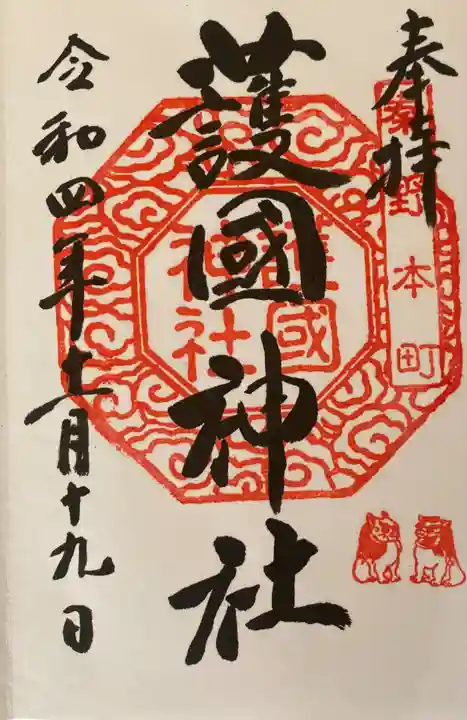 奉拝
野本町
護國神社
護國
神社
令和四年十二月十九日